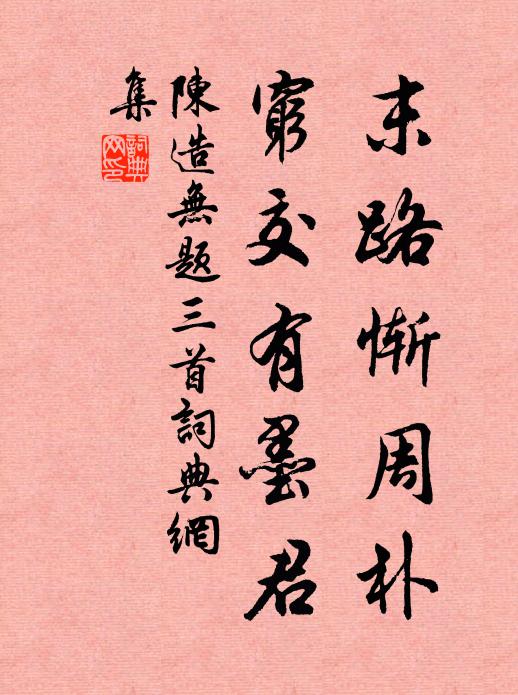 末路慚周朴
窮交有墨君
陳造無題三首詞典網
集
詞典
网印